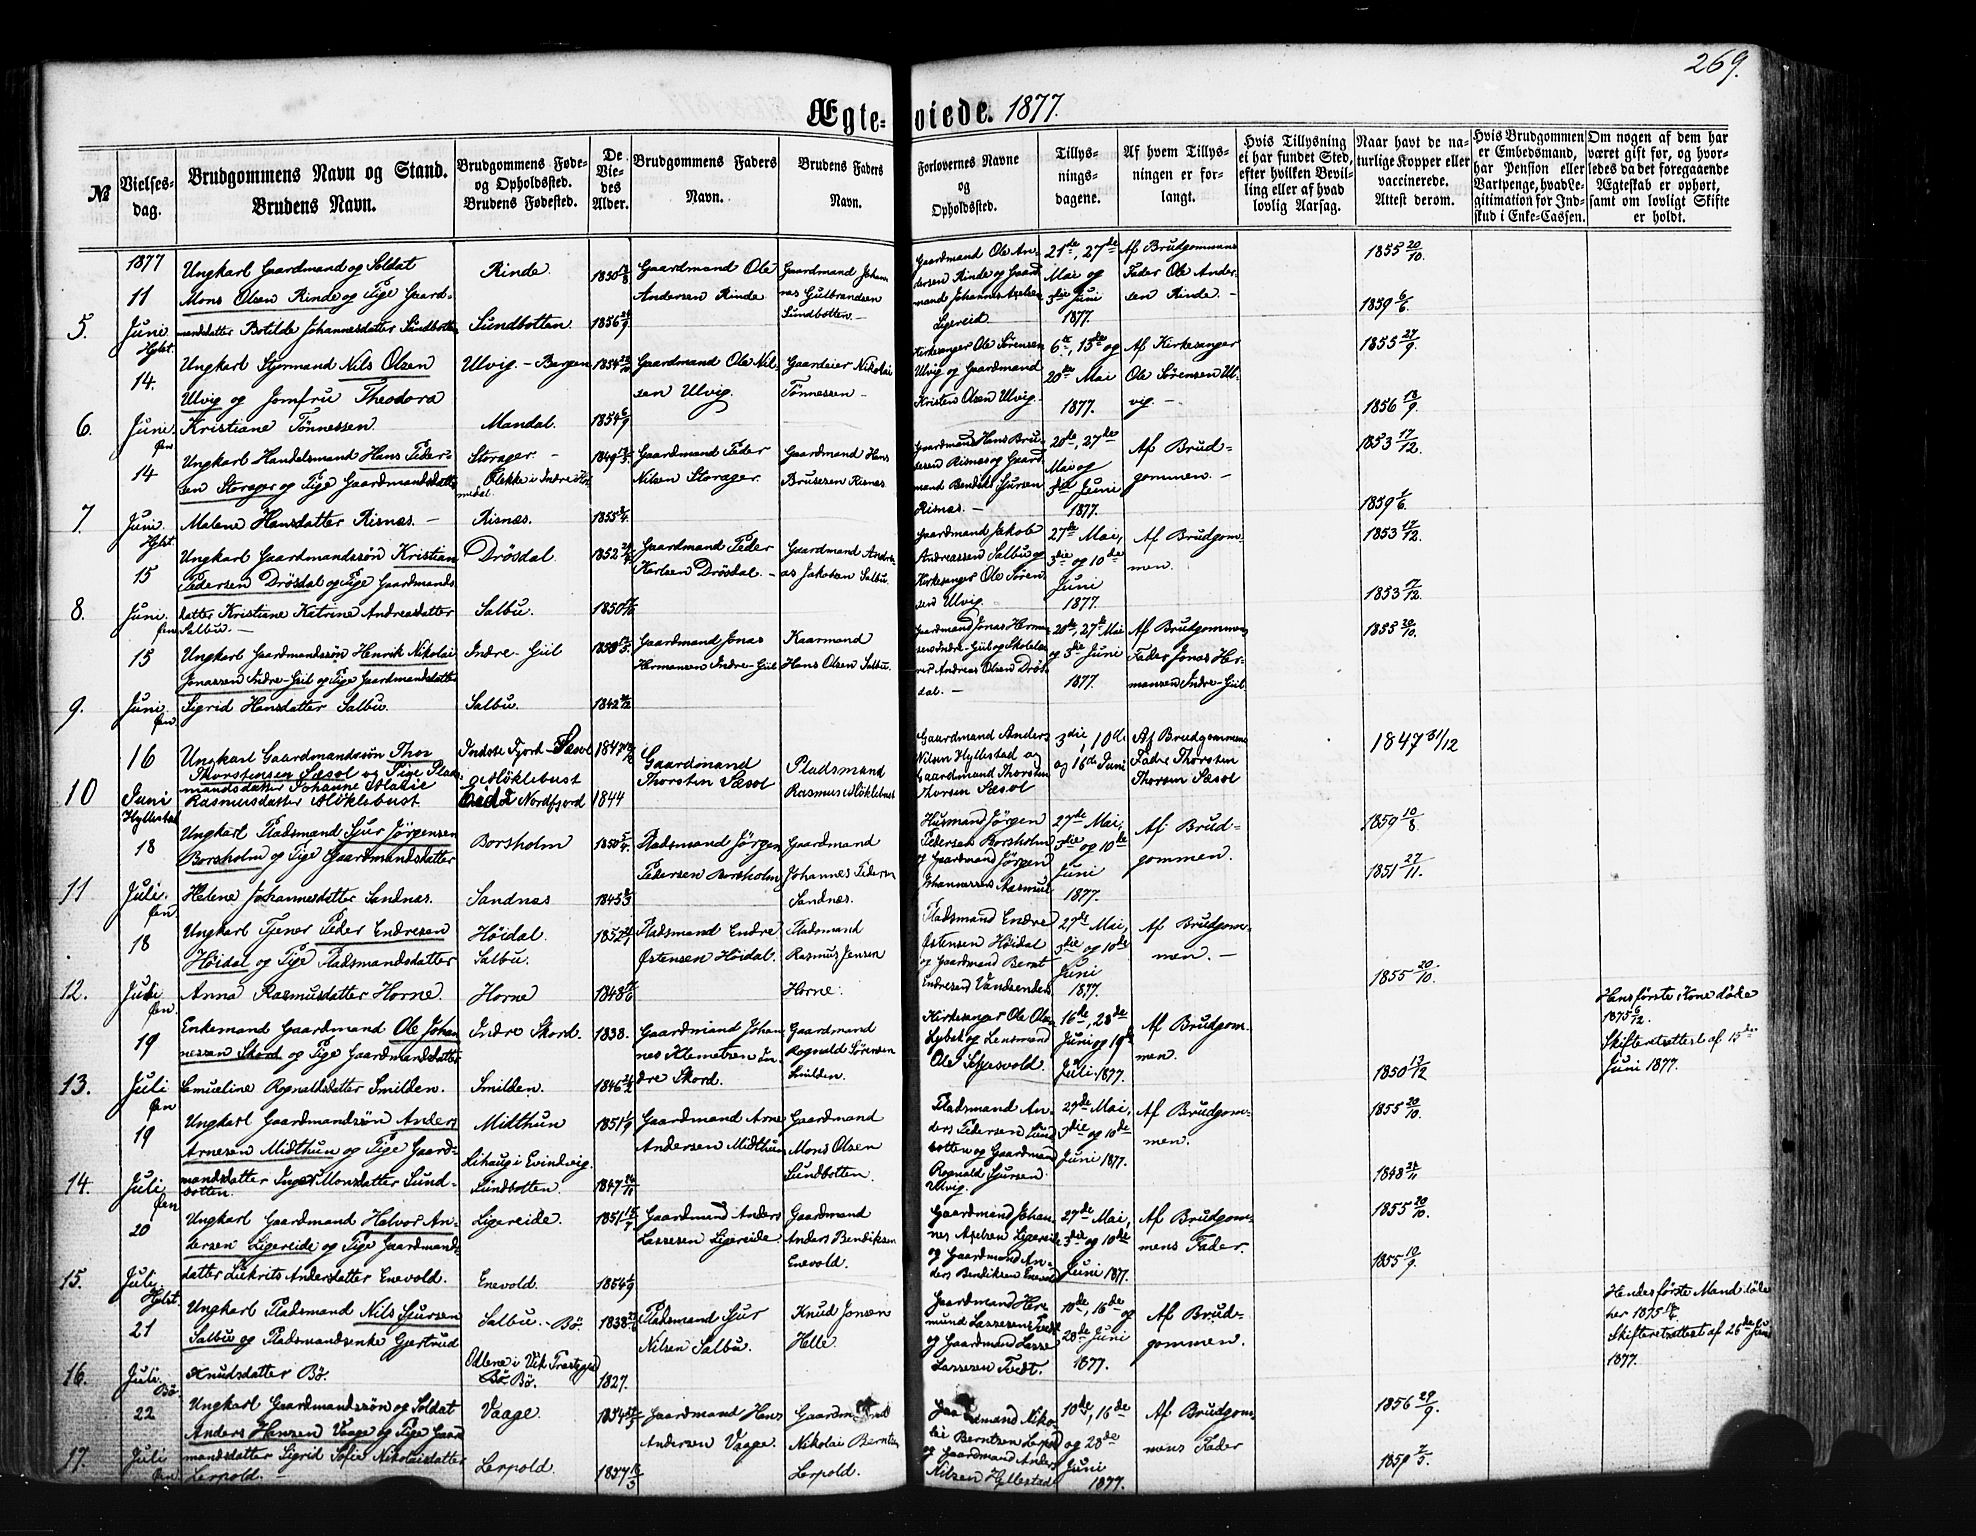 269.
Ægteviede. 1877.
№
Vielsesdag.
Brudgommens Navn og Stand.
Brudens Navn.
Brudgommens Føde- og Opholdssted.
Brudens Fødested.
De Viedes Alder.
Brudgommens Faders Navn.
Brudens Faders Navn.
Forlovernes Navne og Opholdssted.
Tillysningsdagene.
Af hvem Tillysningen er forlangt.
Hvis Tillysning ei har fundet Sted, efter hvilken Bevilling eller af hvad lovlig Aarsag.
Naar havt de naturlige Kopper eller vaccinerede. Attest derom.
Hvis Brudgommen er Embedsmand, har Pension eller Vartpenge, hvad Legitimation for Indskud i Enke-Cassen.
Om nogen af dem har været gift før, og hvorledes da det foregaaende Ægteskab er ophørt, samt om lovligt Skifte er holdt.
5.
1877
11
Juni
Hylst.
Ungkarl Gaardmand og Soldat
Mons Olsen Rinde og Pige Gaard-
mandsdatter Botilde Johannesdatter Sundbotten
Rinde.
Sundbotten.
1850
1856
Gaardmand Ole
Andersen Rinde
Gaardmand Johan-
nes Gulbrandsen
Sundbotten.-
Gaardmand Ole An-
dersen Rinde og Gaard-
mand Johannes Axelsen
Ligereid
21de, 27de
Mai og
3die Juni
1877.
Af Brudgommens
Fader Ole Ander-
sen Rinde. -
1855 20/10.
1859 6/6.
6.
14.
Juni.
Øen
Ungkarl Styrmand Nils Olsen
Ulvig og Jomfru Theodora
Kristiane Tönnessen.
Ulvig. - Bergen
Mandal.
1854
1854 6/9
Gaardmand Ole Nil-
sen Ulvig.
Gaardeier Nikolai
Tönnessen -
Kirkesanger Ole Sörensen
Ulvig og Gaardmand
Kristen Olsen Ulvig.
6te, 13de og
20de Mai
1877.
Af Kirkesanger
Ole Sörensen Ul-
vig. -
1855 27/9.
1856 18/9.
7.
14
Juni.
Hylst.
Ungkarl Handelsmand Hans Peder-
sen Storager og Pige Gaardmandsdatter
Malene Hansdatter Risnæs. -
Storager. -
Risnæs.
1849
1855
Gaardmand Peder
Nilsen Storager.
Gaardmand Hans
Brusesen Risnæs
Gaardmand Hans Bru-
sesen Risnæs og Gaard-
mand Bendik Sjursen
Risnæs. -
20de, 27de
Mai og
3die Juni
1877.
Af Brud-
gommen. -
1853 17/12.
1859 1/6.
8.
15
Juni.
Øen
Ungkarl Gaardmandssön Kristian
Pedersen Drösdal og Pige Gaardmands-
datter Kristiane Katrine Andreasdatter
Salbu. -
Drösdal.
Salbu.
1852
1850
Gaardmand Peder
Karlsen Drösdal. -
Gaardmand Andre-
as Jakobsen Salbu.
Gaardmand Jakob
Andreassen Salbu og
Kirkesanger Ole Sören-
sen Ulvig.
27de Mai,
3die og 10de
Juni
1877.
Af Brudgom-
men.
1853 17/12.
1853 17/12.
9.
15
Juni.
Øen
Ungkarl Gaardmandssön Henrik Nikolai
Jonassen Indre-Giil og Pige Gaardmandsdatter
Sigrid Hansdatter Salbu.
Indre-Giil
Salbu.
1850
1842
Gaardmand Jonas
Hermansen Indre-Giil
Kaarmand
Hans Olsen Salbu.
Gaardmand Jonas Herman-
sen Indre-Giil og Skolelæ-
rer Andreas Olsen Drös-
dal. -
20de, 27de Mai
og 3die Juni
1877.
Af Brudgommens
Fader Jonas Her-
mansen Indre-Giil
1855 20/10.
10
16
Juni
Hyllestad
Ungkarl Gaardmandssön Thor
Thorstensen Sæsol og Pige Plads-
mandsdatter Johanne Malie
Rasmusdatter Möklebust
Indste Fjord - Sæsol
Möklebust
Eid i Nordfjord
1847
1844
Gaardmand
Thorsten Sæsol
Pladsmand
Rasmus Möklebust
Gaardmand Anders
Nilsen Hyllestad og
Gaardmand Thorsten
Thorsen Sæsol
3die, 10de
og 16de Juni
Af Brudgommens
Fader Thorsten
Thorsen Sæsol
1847 31/12
11
18
Juli.
Øen
Ungkarl Pladsmand Sjur Jörgensen
Borsholm og Pige Gaardmandsdatter
Helene Johannesdatter Sandnæs.
Borsholm
Sandnæs
1850 5/4.
1845
Pladsmand Jörgen
Pedersen Borsholm
Gaardmand
Johannes Pedersen
Sandnæs.
Husmand Jörgen
Pedersen Borsholm
og Gaardmand Jörgen
Johannessen Aasmul
27de Mai,
3die og 10de
Juni
1877.
Af Brud-
gommen.
1859 10/8
1851 27/11.
12.
18
Juli
Øen
Ungkarl Tjener Peder Endresen
Höidal og Pige Pladsmandsdatter
Anna Rasmusdatter Horne.
Höidal.
Salbu.
Horne
1852
1848
Pladsmand Endre
Østensen Höidal.
Pladsmand
Rasmus Jensen
Horne.
Pladsmand Endre
Østensen Höidal
og Gaardmand Bernt
Endresen Vandsenden
27de Mai,
3die og 10de
Juni
1877.
Af Brudgom-
men. -
1855 20/10.
13.
19
Juli
Øen
Enkemand Gaardmand Ole Johan-
nessen Skord og Pige Gaardmandsdatter
Samueline Rognaldsdatter Smilden.
Indre Skord.
Smilden.
1838.
1846
Gaardmand Johan-
nes Klemetsen In-
dre Skord.
Gaardmand
Rognald Sörensen
Smilden.
Kirkesanger Ole Olsen
Lybek og Lensmand
Ole Schjesvold.
16de, 23de
Juni og 19de
Juli 1877.
Af Brudgom-
men.
1850 13/12
Hans förste Kone döde
1875 6/12.
Skifteretsattest af 15de
Juni 1877.
14.
19
Juli
Øen
Ungkarl Gaardmandssön Anders
Arnesen Midthun og Pige Gaard-
mandsdatter Inger Monsdatter Sund-
botten.
Midthun
Lihaug i Evindvig.
Sundbotten.
1851 1/9
1847
Gaardmand Arne
Andersen Midthun
Gaardmand
Mons Olsen
Sundbotten.
Pladsmand An-
ders Pedersen Sund-
botten og Gaardmand
Rognald Sjursen
Ulvig.
27de Mai,
3die og 10de
Juni 1877.
Af Brudgom-
men.
1855 20/10.
1848 24/11
15.
20
Juli.
Hylst.
Ungkarl Gaardmand Halvor An-
dersen Ligereide og Pige Gaardmands-
datter Lukrits Andersdatter Enevold.
Ligereide.
Enevold.
1851 15/7
1854
Gaardmand Anders
Lassesen Ligereide
Gaardmand
Anders Bendiksen
Enevold.
Gaardmand Johan-
nes Axelsen Ligereide
og Gaardmand An-
ders Bendiksen Enevold
27de Mai,
3die og 10de
Juni 1877.
Af Brudgom-
mens Fader.
1855 20/10.
1855 19/9.
16.
21
Juli.
Bø.
Ungkarl Pladsmand Nils Sjursen
Salbu og Pladsmandsenke Gjertrud
Knudsdatter Bø.
Salbu. - Bø.
Bø.
1838
1827.
Pladsmand Sjur
Nilsen Salbu.
Knud Jonsen
Helle.
Gaardmand Her-
mund Lassesen Tredt
og Gaardmand Lasse
Lassesen Tredt.
10de, 16de og
23de Juni
1877.
Af Brud-
gommen.
Hendes förste Mand döde
her 1875
Skifteretsattest af 26de Juni
1877.
17.
22
Juli
Øen
Ungkarl Gaardmandssön og Soldat
Anders Hansen Vaage og Pige Gaard-
mandsdatter Sigrid Sofie Nikolaisdatter
Lerpold.
Vaage.
Lerpold.
1854
1857 18/3
Gaardmand Hans
Andersen Vaage.
Gaardmand
Nikolai Berntsen
Lerpold.
Gaardmand Niko-
lai Berntsen Lerpold
og Gaardmand Anders
Nilsen Hyllestad
10de, 16de
og 23de
Juni
1877.
Af Brudgom-
mens Fader
1856 29/9.
1859 7/5.